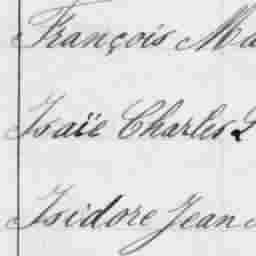 François Ma
Isaïe Charles L
Isidore Jean